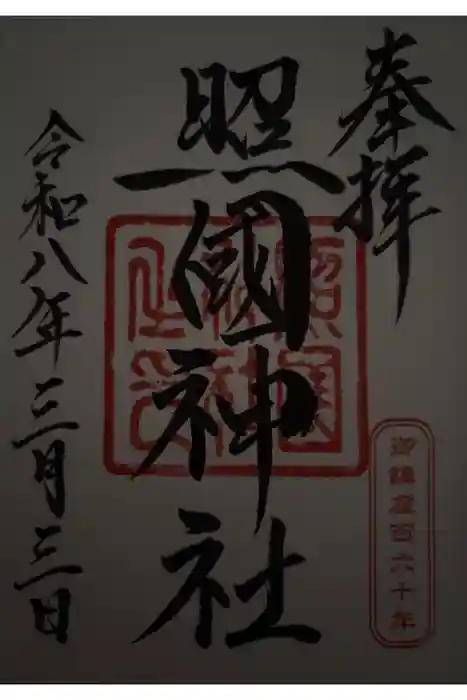 奉拝
照國神社
令和八年三月三日
照國神社之印
御鎮座百六十年